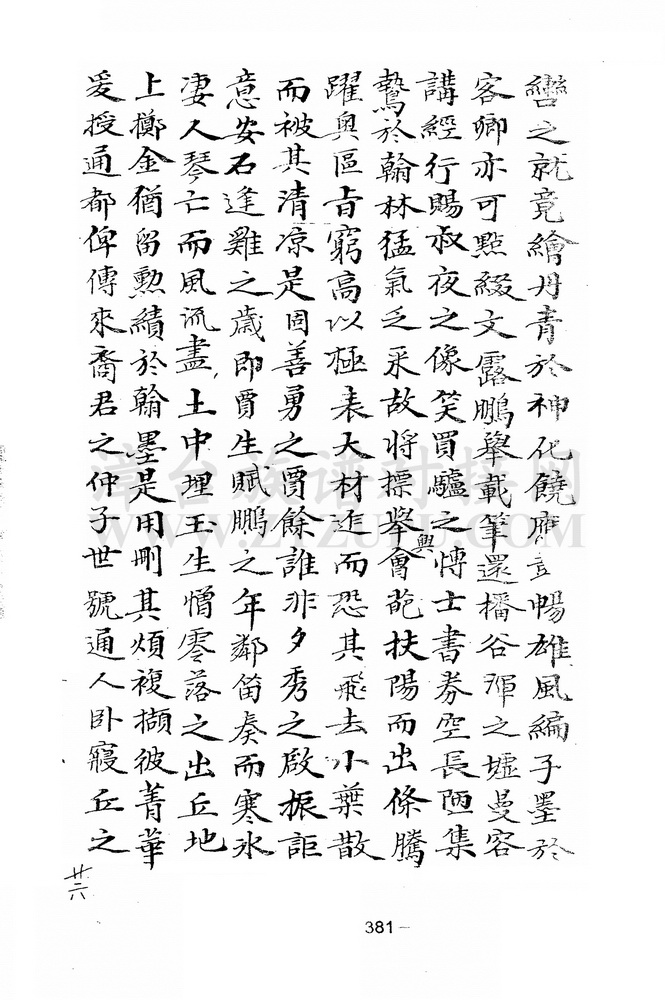 轡之就竟繪丹青於神化饒應言暢雄風編子墨於
客卿亦可點綴文露鵬舉載筆還播谷渾之墟曼容
講經行賜叔夜之像笑買驢之博士書券空長陋集
鷙於翰林猛氣乏采故將摽舉興會葩扶陽而出條騰
躍奧區旨窮高以極表大材迮而恐其飛去小葉散
而被其清凉是固善勇之賈餘誰非夕秀之啟振詎
意安石逢雞之歲即賈生賦鵬之年鄰笛奏而寒氷
凄人琴亡而風流盡土中埋玉生憎零落之出丘地
上擲金猶留勳績於翰墨是用刪其煩複擷彼菁華
爰授通都俾傳來裔君之仲子世號通人臥寢丘之
廿六
381
漳台族谱对接网
WWW.ZTZUPU.COM